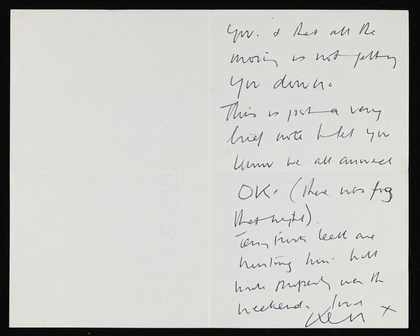 you. & that all the
moving is not getting
you down.
This is just a very
brief note to let you
know we all arrived
OK. (there was fog
that night).
are
hunting him. Will
write properly over the
weekend. love
x